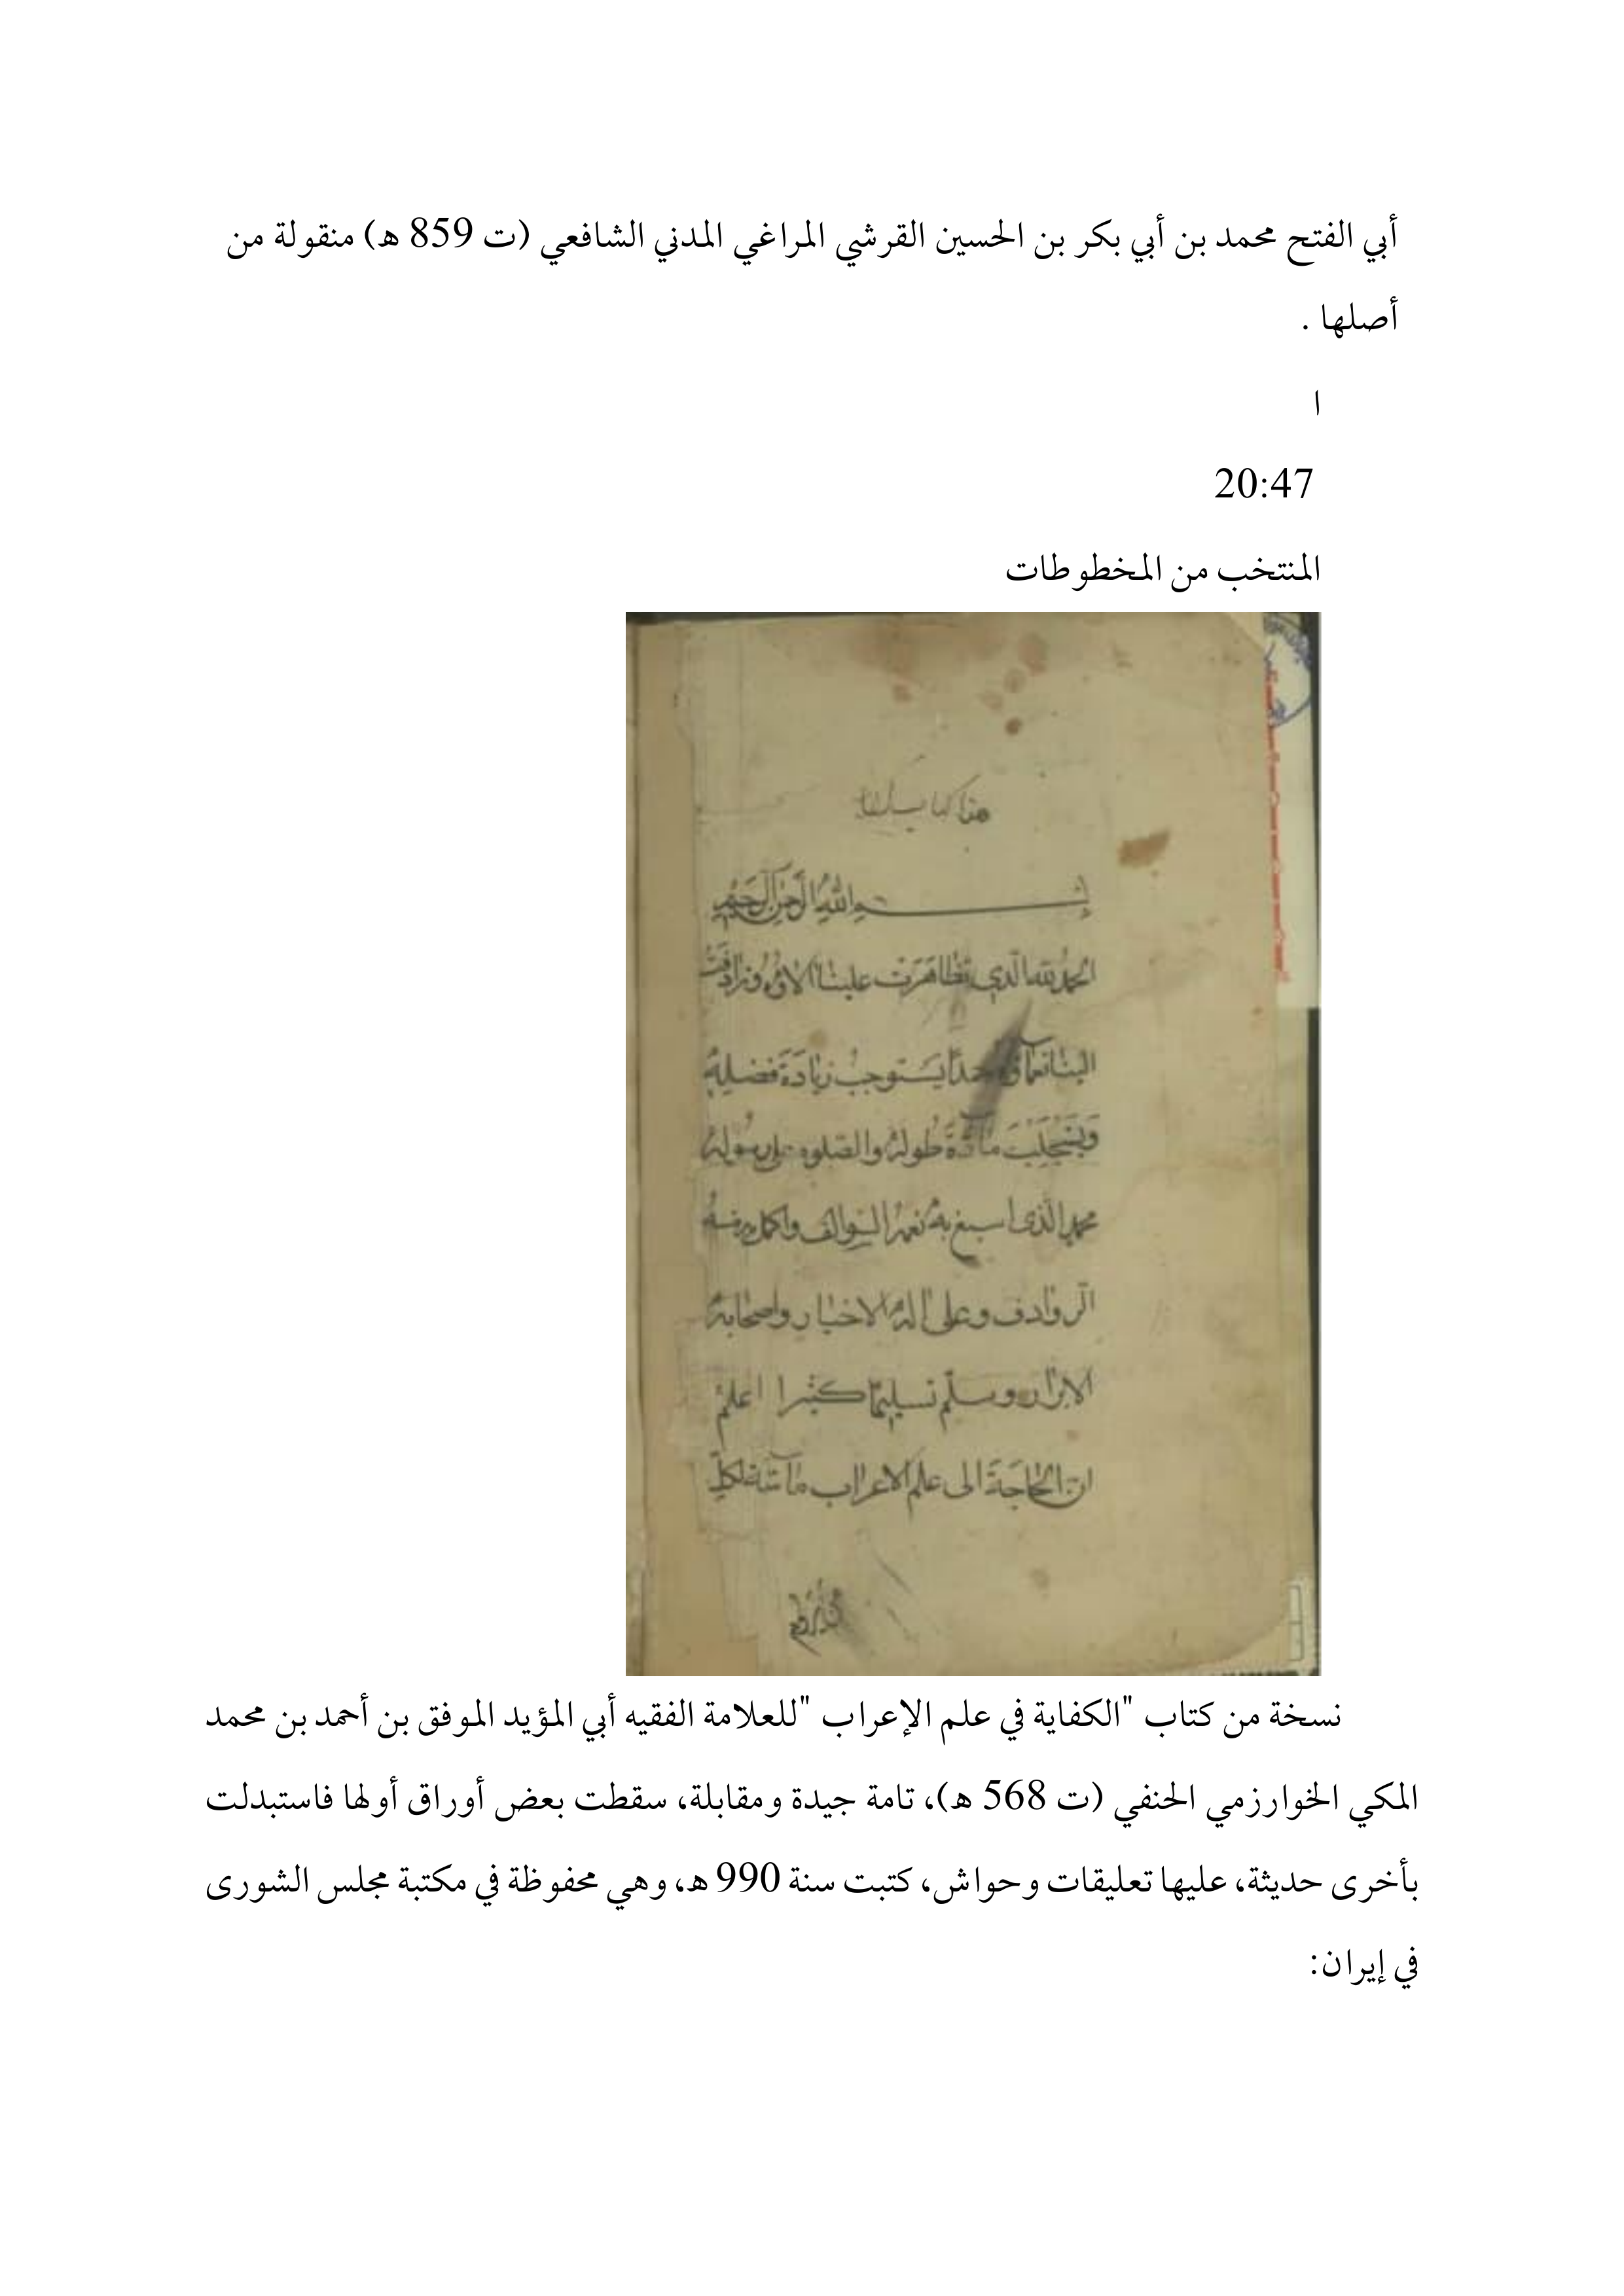 أبي الفتح محمد بن أبي بكر بن الحسين القرشي المراغي المدني الشافعي (ت 859 هـ) منقولة من
أصلها .
ا
20:47
المنتخب من المخطوطات
هذا كتاب
بسم الله الرحمن الرحيم
الحمد لله الذي تظاهرت علينا الاؤه وترادفت
الينا نعماؤه حمدا يستوجب زيادة فضله
ويستجلب مادة طوله والصلوة على رسوله
محمد الذي اسبغ به نعمه السوالف واكمل
الروادف وعلى اله الاخيار واصحابه
الابرار وسلم تسليما كثيرا اعلم
ان الحاجة الى علم الاعراب ماسة لكل
نسخة من كتاب "الكفاية في علم الإعراب "للعلامة الفقيه أبي المؤيد الموفق بن أحمد بن محمد
المكي الخوارزمي الحنفي (ت 568 هـ)، تامة جيدة ومقابلة، سقطت بعض أوراق أولها فاستبدلت
بأخرى حديثة، عليها تعليقات وحواش، كتبت سنة 990 هـ، وهي محفوظة في مكتبة مجلس الشورى
في إيران: